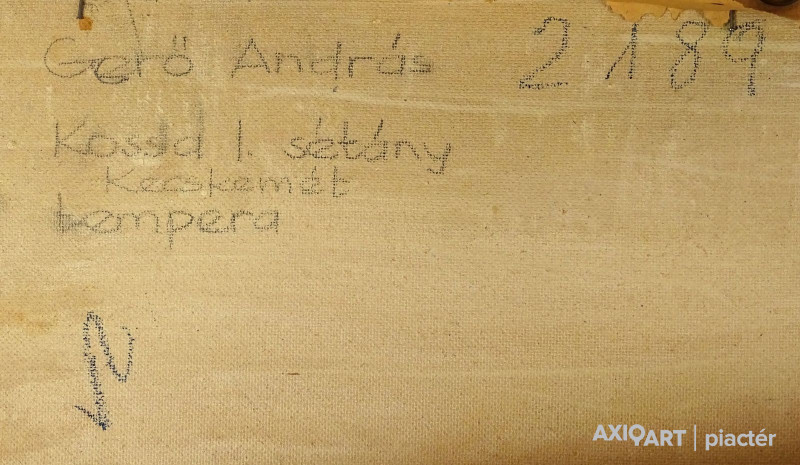 Gerő András 2189
Kossa I. sétány
Kecskemét
tempera
AXIOART | piactér